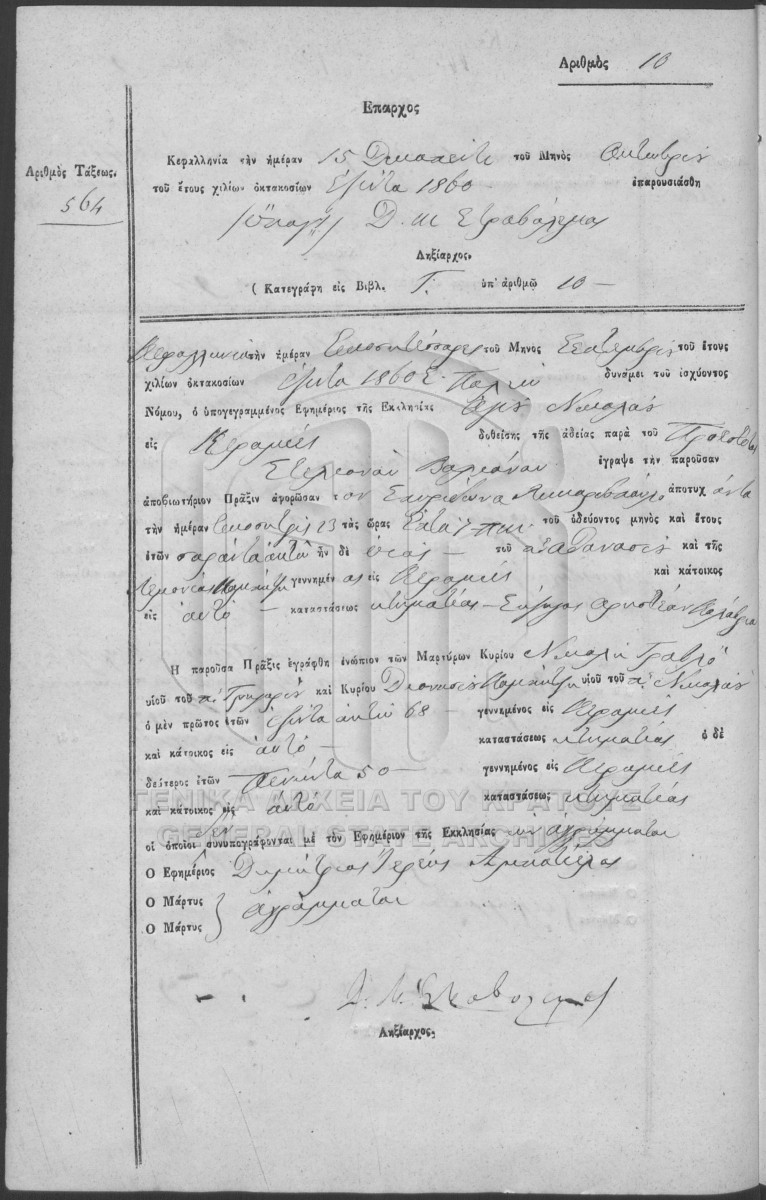 Αριθμὸς 10
Επαρχος
Αριθμὸς Τάξεως.
564
Κεφαλληνία τὴν ἡμέραν 15 Δεκαπέντε τοῦ Μηνὸς Οκτωβρίου
τοῦ ἔτους χιλίων ὀκτακοσίων ἑξῆντα 1860 ἐπαρουσιάσθη
Ληξίαρχος.
( Κατεγράφη εἰς Βιβλ. Γ. ὑπ' ἀριθμῷ 10 —
Κεφαλληνία τὴν ἡμέραν Εικοσιτέσσαρες τοῦ Μηνος Σεπτεμβρίου τοῦ ἔτους
χιλίων ὀκτακοσίων ἑξῆντα 1860 Ε. Παλαιόν δυνάμει τοῦ ἰσχύοντος
Νόμου, ὁ ὑπογεγραμμένος Εφημέριος τῆς Εκκλησίας Αγίου Νικολάου
εἰς Κεραμιές δοθείσης τῆς ἀδείας παρὰ τοῦ
ἔγραψε τὴν παροῦσαν
ἀποβιωτήριον Πρᾶξιν ἀφορῶσαν τον Σπυρίδωνα ἀποτυχόντα
τὴν ἡμέραν εικοσιτρις 23 τὰς ὥρας Επτά 7 π.μ. τοῦ ὁδεύοντος μηνὸς καὶ ἔτους
ἐτῶν σαράντα οκτώ ἦν δὲ υιός — τοῦ π. Αθανασίου καὶ τῆς
γεννημένος εἰς Κεραμιές καὶ κάτοικος
εἰς αυτό — καταστάσεως κτηματίας — Σύζυγος
Η παροῦσα Πρᾶξις ἐγράφθη ἐνώπιον τῶν Μαρτύρων Κυρίου Νικολή
υἱοῦ τοῦ π. Γρηγορίου καὶ Κυρίου Διονυσίου υἱοῦ τοῦ π. Νικολάου
ὁ μὲν πρῶτος ἐτῶν ἑξῆντα οκτώ 68 — γεννημένος εἰς Κεραμιές
καὶ κάτοικος εἰς αυτό — καταστάσεως κτηματίας ὁ δὲ
δεύτερος ἐτῶν Πενῆντα 50 — γεννημένος εἰς Κεραμιές
καὶ κάτοικος εἰς αυτό καταστάσεως κτηματίας
οἱ ὁποῖοι δεν συνυπογράφονται μὲ τὸν Εφημέριον τῆς Εκκλησίας ως αγράμματοι
Ο Εφημέριος Δημήτριος Ιερεύς
Ο Μάρτυς
Ο Μάρτυς } αγράμματοι
Ληξίαρχος.
ΓΕΝΙΚΑ ΑΡΧΕΙΑ ΤΟΥ ΚΡΑΤΟΥΣ
GENERAL STATE ARCHIVES